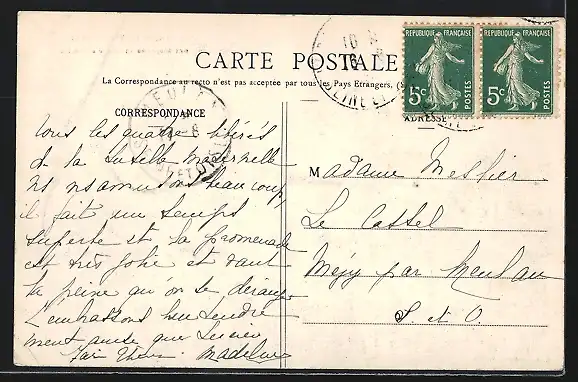 CARTE POSTALE
La Correspondance au recto n'est pas acceptée par tous les Pays Etrangers, (S
REPUBLIQUE FRANÇAISE
5c POSTES
REPUBLIQUE FRANÇAISE
5c POSTES
CORRESPONDANCE
ADRESSE
tous les quatre libérés
de la tutelle maternelle
ns ns amusons beaucoup
il fait un temps
superbe et la promenade
est très jolie et vaut
la peine qu'on se dérange
t'embrassons bien tendre
ment ainsi que
Madeleine
Madame Meslier
Le Castel
Mézy par Meulan
S. et O.